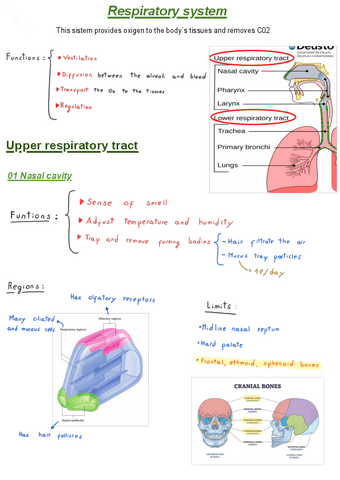 Respiratory system
This sistem provides oxigen to the body's tissues and removes C02
Functions:
Ventilation
Diffusion between the alveoli and blood
Transport the O2 to the tissues
Regulation
Deusto
Upper respiratory tract
Nasal cavity
Pharynx
Larynx
Lower respiratory tract
Trachea
Primary bronchi
Lungs
Upper respiratory tract
01 Nasal cavity
Funtions:
Sense of smell
Adjust temperature and humidity
Trap and remove foreing bodies
- Hair filtrate the air
- Mucus trap particles
1l/day
Regions:
Has olfatory receptors
Many ciliated
and mucous cells
Respiratory regions
Olfactory regions
Nasal vestibules
Has hair follicles
Limits:
• Midline nasal septum
• Hard palate
• Frontal, ethmoid, sphenoid bones
CRANIAL BONES